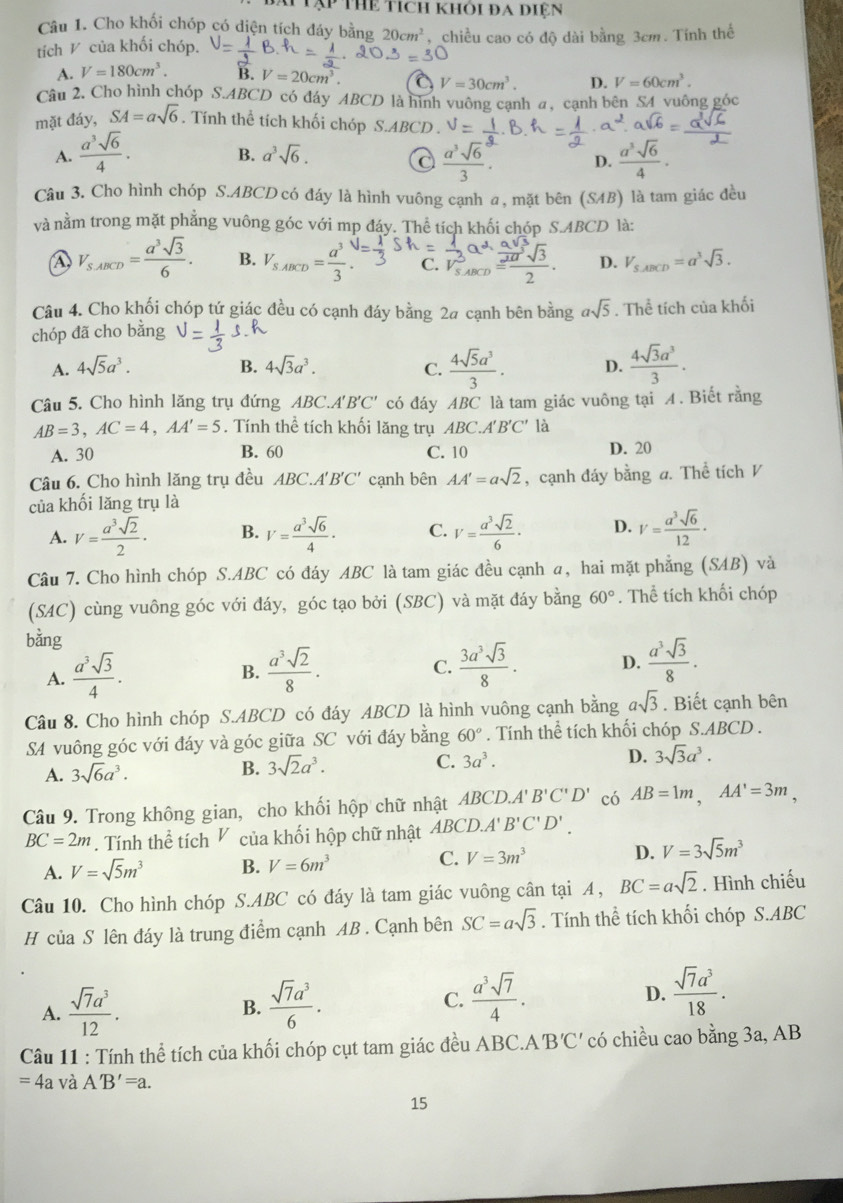 BÀI TẬP THỂ TÍCH KHỐI ĐA DIỆN
Câu 1. Cho khối chóp có diện tích đáy bằng 20cm², chiều cao có độ dài bằng 3cm. Tính thể
tích V của khối chóp. V = 1/2 B.h = 1/2 . 20.3 = 30
A. V = 180cm³. B. V = 20cm³. C. V = 30cm³. D. V = 60cm³.
Câu 2. Cho hình chóp S.ABCD có đáy ABCD là hình vuông cạnh a, cạnh bên SA vuông góc
mặt đáy, SA = a√6. Tính thể tích khối chóp S.ABCD. V = 1/2 . B. h = 1/2 . a². a√6 = a³√6/2
A. a³√6/4. B. a³√6. C. a³√6/3. D. a³√6/4.
Câu 3. Cho hình chóp S.ABCD có đáy là hình vuông cạnh a, mặt bên (SAB) là tam giác đều
và nằm trong mặt phẳng vuông góc với mp đáy. Thể tích khối chóp S.ABCD là:
V = 1/3 S h = 1/3 a² a√3/2
A. V_S.ABCD = a³√3/6. B. V_S.ABCD = a³/3. C. V_S.ABCD = a³√3/2. D. V_S.ABCD = a³√3.
Câu 4. Cho khối chóp tứ giác đều có cạnh đáy bằng 2a cạnh bên bằng a√5. Thể tích của khối
chóp đã cho bằng V = 1/3 S.h
A. 4√5a³. B. 4√3a³. C. 4√5a³/3. D. 4√3a³/3.
Câu 5. Cho hình lăng trụ đứng ABC.A'B'C' có đáy ABC là tam giác vuông tại A. Biết rằng
AB = 3, AC = 4, AA' = 5. Tính thể tích khối lăng trụ ABC.A'B'C' là
A. 30 B. 60 C. 10 D. 20
Câu 6. Cho hình lăng trụ đều ABC.A'B'C' cạnh bên AA' = a√2, cạnh đáy bằng a. Thể tích V
của khối lăng trụ là
A. V = a³√2/2. B. V = a³√6/4. C. V = a³√2/6. D. V = a³√6/12.
Câu 7. Cho hình chóp S.ABC có đáy ABC là tam giác đều cạnh a, hai mặt phẳng (SAB) và
(SAC) cùng vuông góc với đáy, góc tạo bởi (SBC) và mặt đáy bằng 60°. Thể tích khối chóp
bằng
A. a³√3/4. B. a³√2/8. C. 3a³√3/8. D. a³√3/8.
Câu 8. Cho hình chóp S.ABCD có đáy ABCD là hình vuông cạnh bằng a√3. Biết cạnh bên
SA vuông góc với đáy và góc giữa SC với đáy bằng 60°. Tính thể tích khối chóp S.ABCD.
A. 3√6a³. B. 3√2a³. C. 3a³. D. 3√3a³.
Câu 9. Trong không gian, cho khối hộp chữ nhật ABCD.A'B'C'D' có AB = 1m, AA' = 3m,
BC = 2m. Tính thể tích V của khối hộp chữ nhật ABCD.A'B'C'D'.
A. V = √5m³ B. V = 6m³ C. V = 3m³ D. V = 3√5m³
Câu 10. Cho hình chóp S.ABC có đáy là tam giác vuông cân tại A, BC = a√2. Hình chiếu
H của S lên đáy là trung điểm cạnh AB. Cạnh bên SC = a√3. Tính thể tích khối chóp S.ABC
.
A. √7a³/12. B. √7a³/6. C. a³√7/4. D. √7a³/18.
Câu 11 : Tính thể tích của khối chóp cụt tam giác đều ABC.A'B'C' có chiều cao bằng 3a, AB
= 4a và A'B'=a.
15